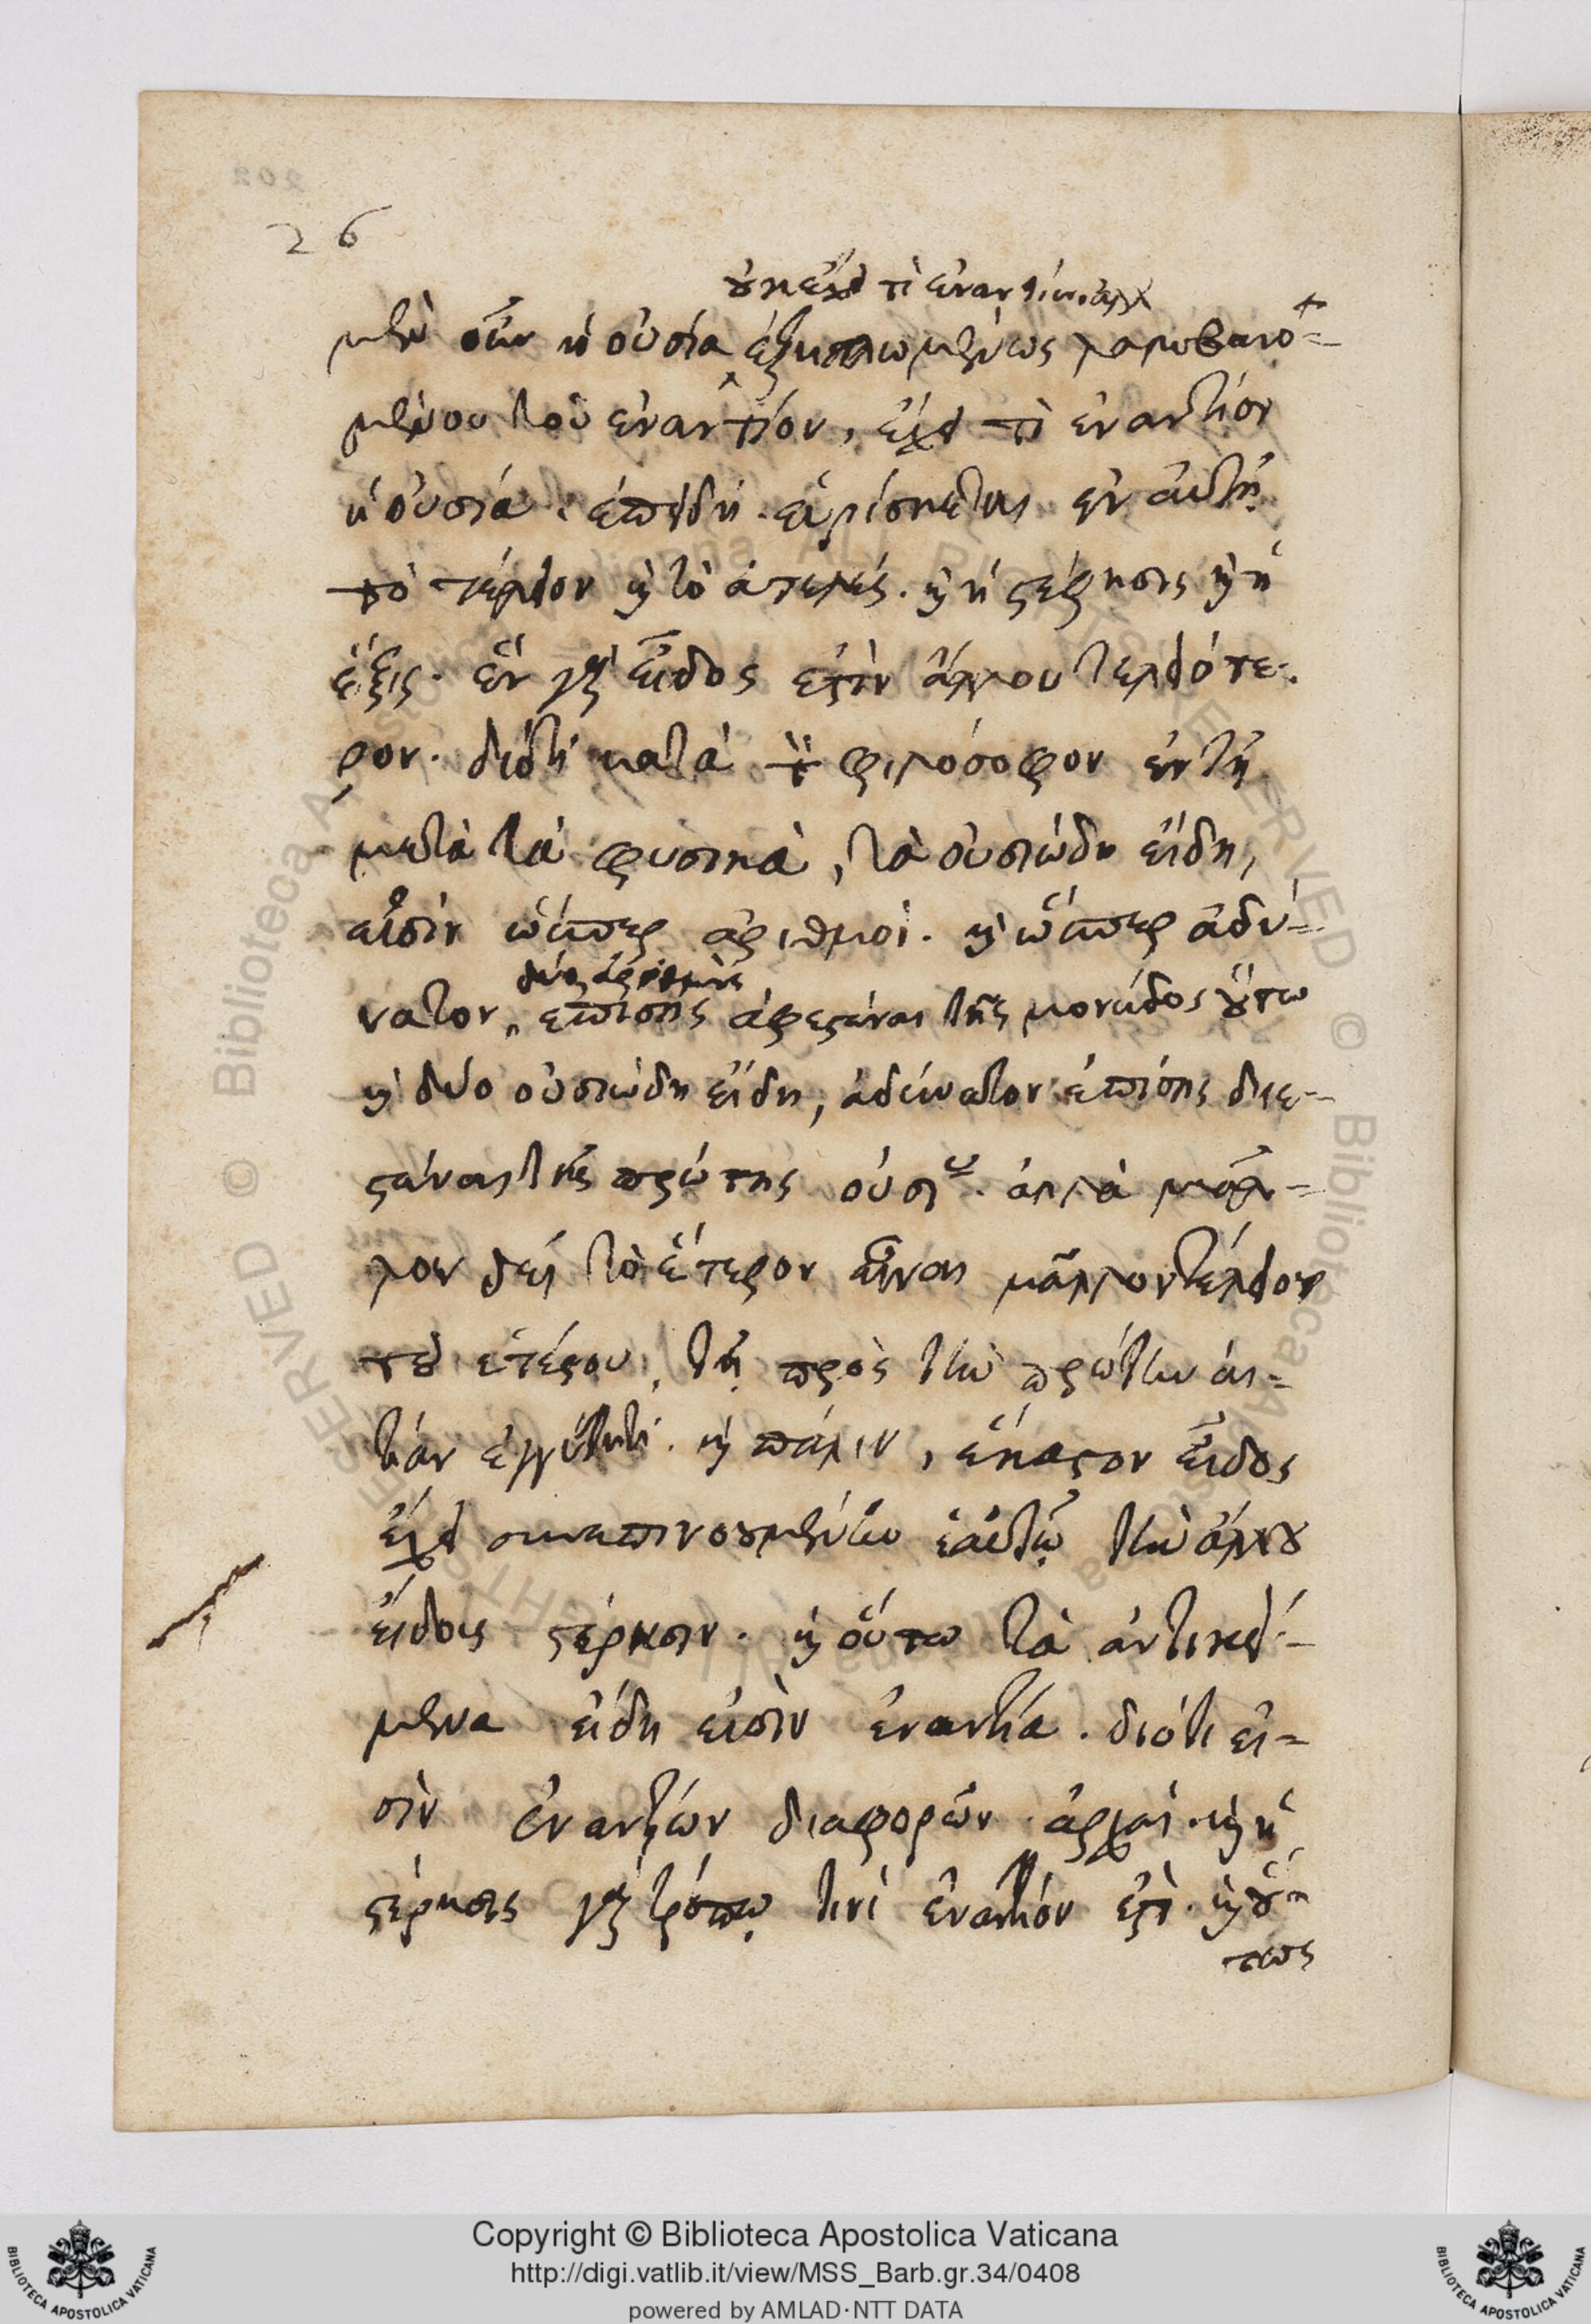 26
οὐκ ἔχει τὶ ἐναντίον. ἀλλ
μὲν οὖν ἡ οὐσία ἐξηπλωμένως λαμβανο=
μένου τοῦ ἐναντίου, ἔχει τὶ ἐναντίον
ἡ οὐσία. ἐπειδὴ εὑρίσκεται ἐν αὐτῇ
τὸ τέλειον καὶ τὸ ἀτελές. καὶ ἡ στέρησις καὶ ἡ
ἕξις. ἓν γὰρ εἶδος ἐστὶν ἄλλου τελειότε-
ρον. διότι κατὰ τὸν φιλόσοφον ἐν τῇ
μετὰ τὰ φυσικὰ, τὰ οὐσιώδη εἴδη,
εἰσὶν ὥσπερ ἀριθμοί. καὶ ὥσπερ ἀδύ=
δύο ἀριθμοὺς
νατον, ἐπίσης ἀφεστάναι τῆς μονάδος οὕτω
καὶ δύο οὐσιώδη εἴδη, ἀδύνατον ἐπίσης διε-
στάναι τῆς πρώτης οὐσίας. ἀλλὰ μᾶλ=
λον δεῖ τὸ ἕτερον εἶναι μᾶλλον τέλειον
τοῦ ἑτέρου, τῇ πρὸς τὴν πρώτην αἰ=
τίαν ἐγγύτητι. καὶ πάλιν, ἕκαστον εἶδος
ἔχει συνεπινοουμένην ἑαυτῷ τὴν ἄλλου
εἴδους στέρησιν. καὶ οὕτω τὰ ἀντικεί=
μενα εἴδη εἰσὶν ἐναντία. διότι εἰ=
σὶν ἐναντίων διαφορῶν ἀρχαί. καὶ ἡ
στέρησις γὰρ τρόπῳ τινὶ ἐναντίον ἐστὶ. καὶ οὕ=
τως
Copyright © Biblioteca Apostolica Vaticana
http://digi.vatlib.it/view/MSS_Barb.gr.34/0408
powered by AMLAD·NTT DATA